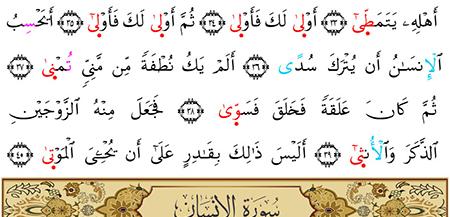 أَهْلِهِۦ يَتَمَطَّىٰٓ ﴿٣٣﴾ أَوْلَىٰ لَكَ فَأَوْلَىٰ ﴿٣٤﴾ ثُمَّ أَوْلَىٰ لَكَ فَأَوْلَىٰٓ ﴿٣٥﴾ أَيَحْسَبُ
ٱلْإِنسَـٰنُ أَن يُتْرَكَ سُدًى ﴿٣٦﴾ أَلَمْ يَكُ نُطْفَةً مِّن مَّنِىٍّ تُمْنَىٰ ﴿٣٧﴾
ثُمَّ كَانَ عَلَقَةً فَخَلَقَ فَسَوَّىٰ ﴿٣٨﴾ فَجَعَلَ مِنْهُ ٱلزَّوْجَيْنِ
ٱلذَّكَرَ وَٱلْأُنثَىٰٓ ﴿٣٩﴾ أَلَيْسَ ذَٰلِكَ بِقَـٰدِرٍ عَلَىٰٓ أَن يُحْـِۧىَ ٱلْمَوْتَىٰ ﴿٤٠﴾
سُورَةُ الإِنسَانِ